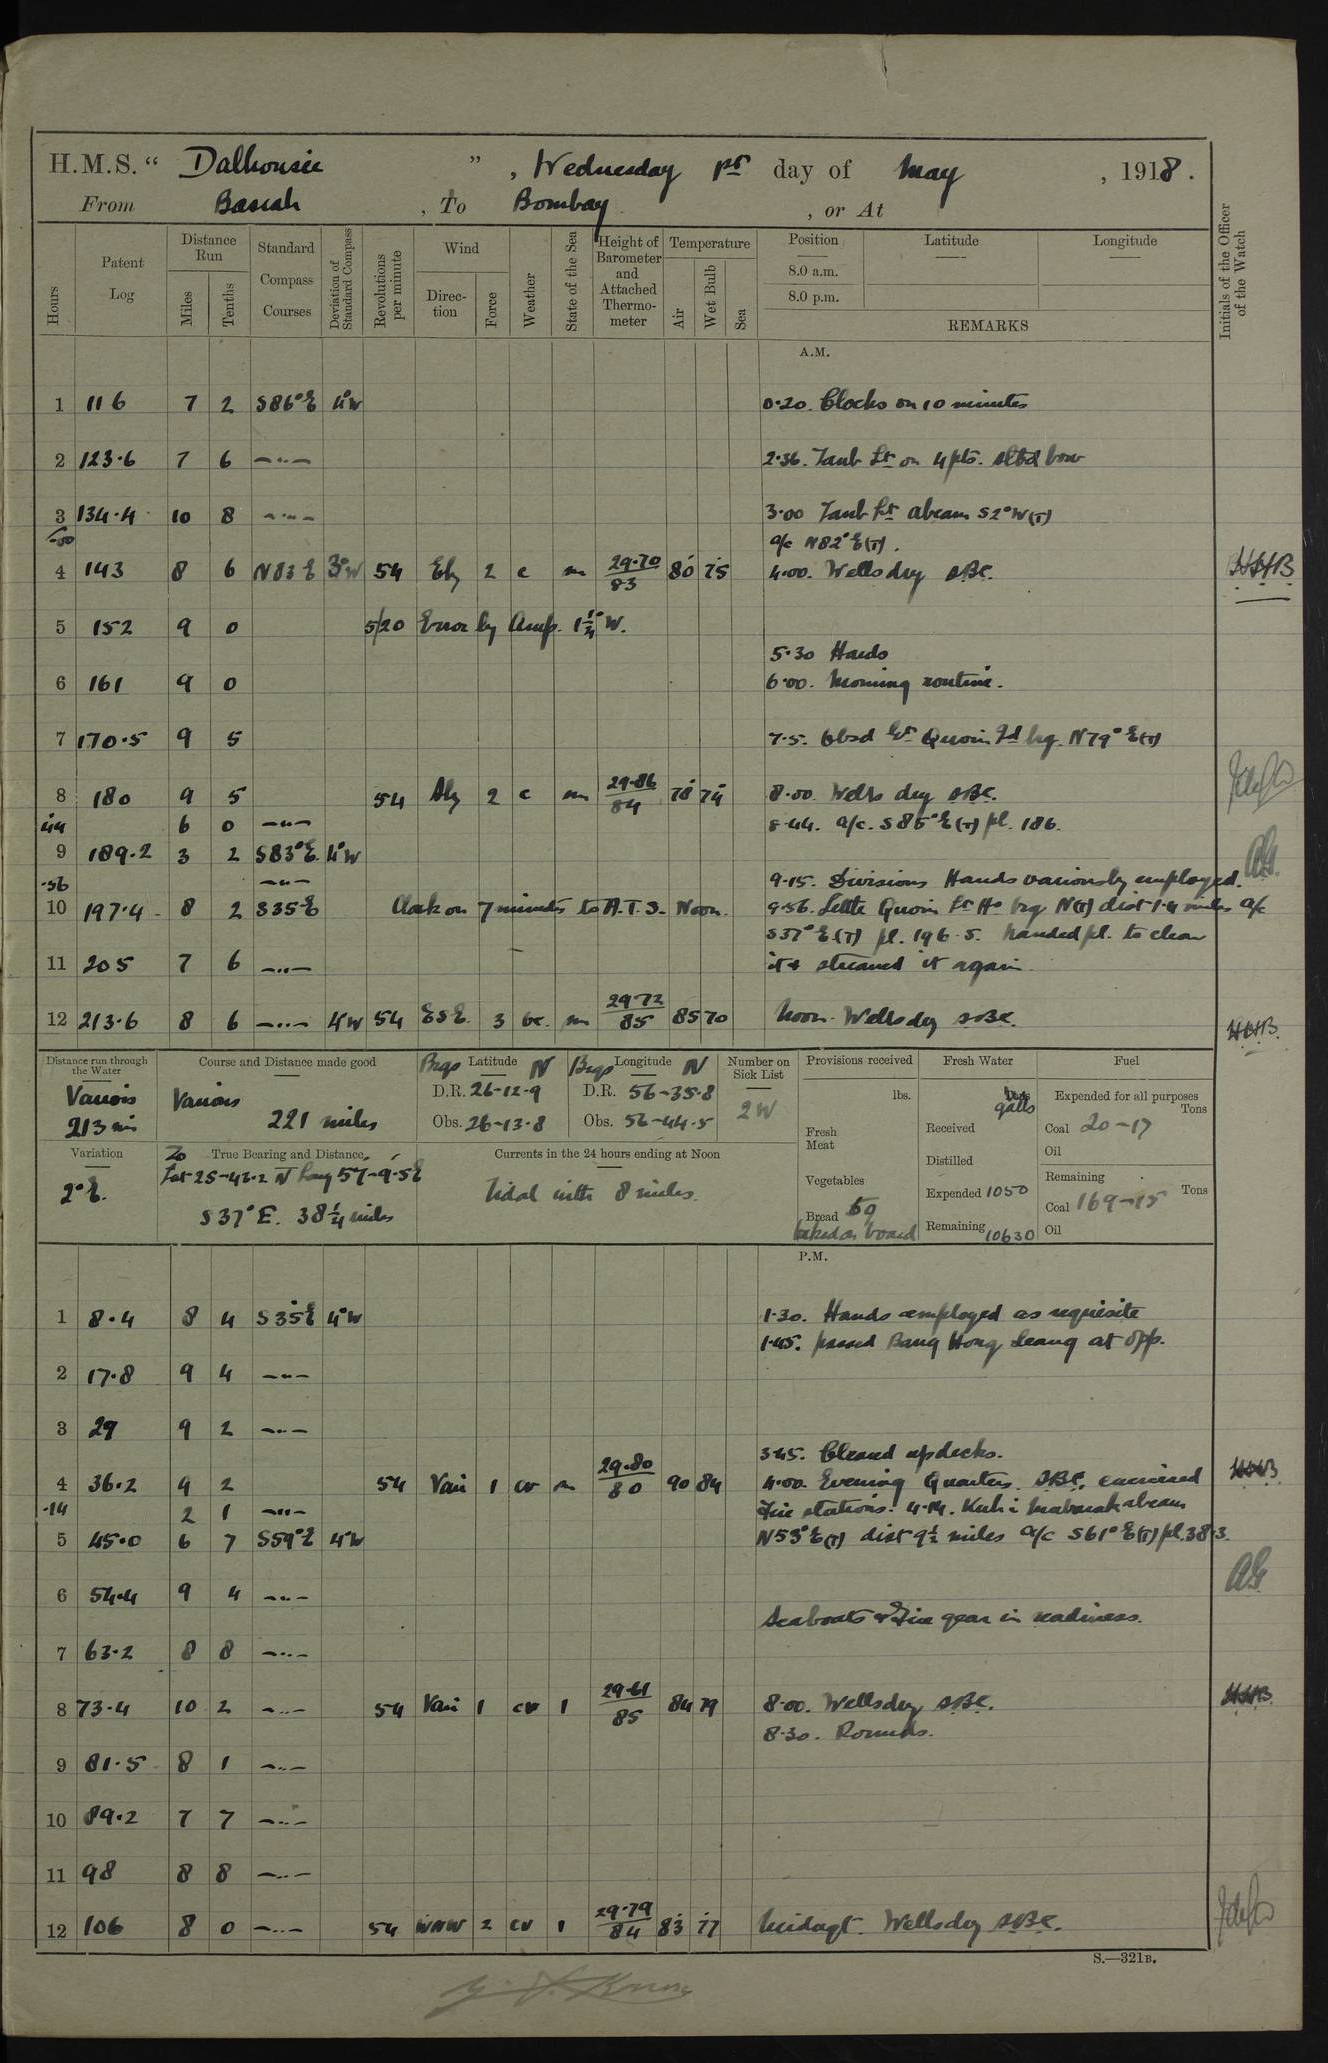 H.M.S. " Dalhousie ", Wednesday 1st day of May, 1918.
From Basrah, To Bombay, or At
Hours
Patent Log
Distance Run
Miles
Tenths
Standard Compass Courses
Deviation of Standard Compass
Revolutions per minute
Wind
Direction
Force
Weather
State of the Sea
Height of Barometer and Attached Thermometer
Temperature
Air
Wet Bulb
Sea
Position
8.0 a.m.
8.0 p.m.
Latitude
Longitude
REMARKS
Initials of the Officer of the Watch
A.M.
1 116 7 2 S86°E 4°W 0.20. Clocks on 10 minutes
2 123.6 7 6 —"— 2.36. Tanb Lt on 4 pts. stbd bow
3 134.4 10 8 —"— 3.00 Tanb Lt abeam S2°W(T)
.00 a/c N82°E(T).
4 143 8 6 N83E 3°W 54 Ely 2 c m 29.70 83 80 75 4.00. Wells dry SBC. HHB
5 152 9 0 5/20 Error by Amp. 1¼°W.
5.30 Hands
6 161 9 0 6.00. Morning routine.
7 170.5 9 5 7.5. Obsd Gt Quoin Id brg. N79°E(T)
8 180 9 5 54 Sly 2 c m 29.86 84 78 74 8.00. Wells dry SBC.
.44 6 0 —"— 8.44. a/c. S85°E(T) pl. 186.
9 189.2 3 2 S83°E. 4°W
.56 —"— 9.15. Divisions Hands variously employed.
10 197.4 8 2 S35E Clock on 7 minutes to A.T.S. Noon. 9.56. Little Quoin Lt Ho brg N(T) dist 1.4 miles a/c
S37°E(T) pl. 196.5. handed pl. to clear
11 205 7 6 —"— it & streamed it again
12 213.6 8 6 —"— 4W 54 ESE. 3 bc. m 29.72 85 85 70 Noon. Wells dry SBC. HHB
Distance run through the Water
Various
213 m
Course and Distance made good
Various
221 miles
Brgs Latitude N
D.R. 26-12-9
Obs. 26-13-8
Brgs Longitude N
D.R. 56-35.8
Obs. 56-44.5
Number on Sick List
2W
Provisions received
lbs.
Fresh Meat
Vegetables
Bread 59
baked on board
Fresh Water
Tons
galls
Received
Distilled
Expended 1050
Remaining 10630
Fuel
Expended for all purposes
Tons
Coal 20-17
Oil
Remaining
Tons
Coal 169-15
Oil
Variation
2°E.
To True Bearing and Distance.
Lat 25-42.2 N Long 57-9.5E
S37°E. 38¼ miles
Currents in the 24 hours ending at Noon
Tidal with 8 miles.
P.M.
1 8.4 8 4 S35°E 4°W 1.30. Hands employed as requisite
1.45. passed Bang Hong Leang at opp.
2 17.8 9 4 —"—
3 29 9 2 —"—
3.45. Cleared up decks.
4 36.2 9 2 54 Vari 1 cv m 29.80 80 90 84 4.00. Evening Quarters. SBC. exercised HHB
.14 2 1 —"— Fire stations. 4.14. Kuh i Mabarak abeam
5 45.0 6 7 S59°E 4°W N53°E(T) dist 9½ miles a/c S61°E(T) pl. 38.3.
6 54.4 9 4 —"—
Seaboats & Fire gear in readiness.
7 63.2 8 8 —"—
8 73.4 10 2 —"— 54 Vari 1 cv 1 29.61 85 84 79 8.00. Wells dry SBC. HHB
8.30. Rounds.
9 81.5 8 1 —"—
10 89.2 7 7 —"—
11 98 8 8 —"—
12 106 8 0 —"— 54 WNW 2 cv 1 29.79 84 83 77 Midngt. Wells dry SBC.
S.—321B.